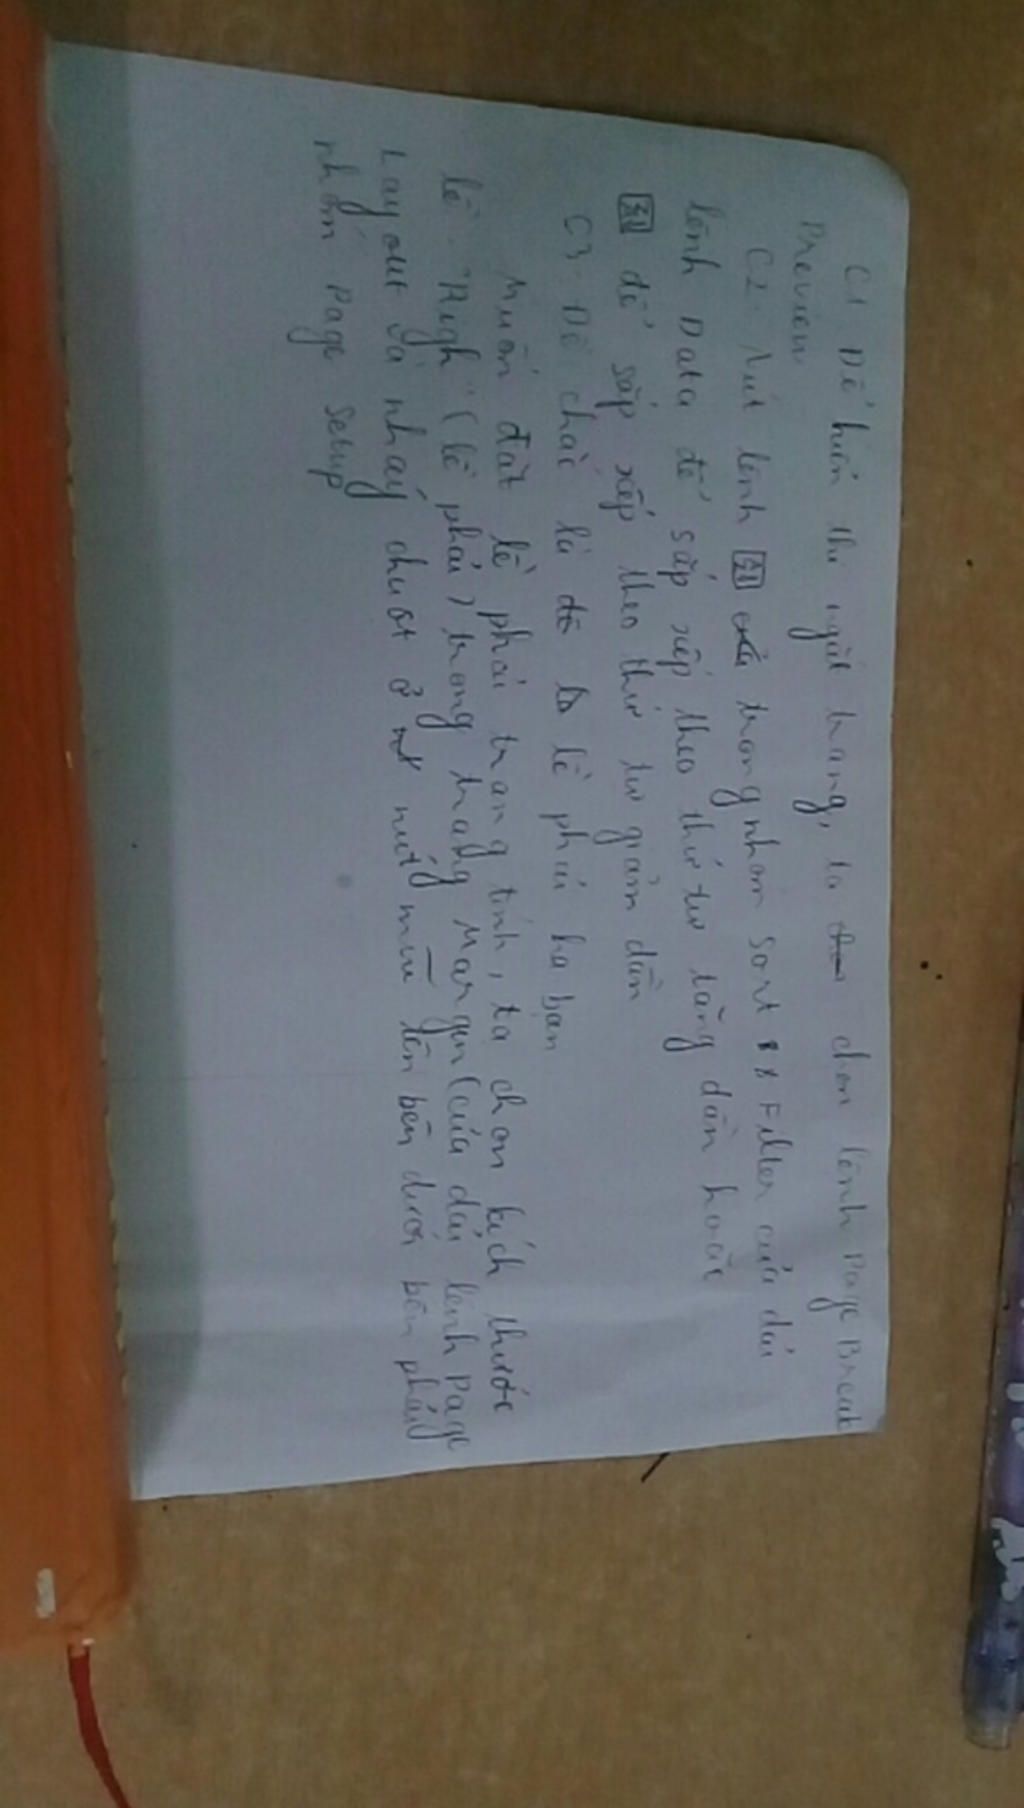 C1 Để hiển thị ngắt trang, ta chọn lệnh Page Break
Preview
C2. Nút lệnh trong nhóm Sort & Filter của dải
lệnh Data để sắp xếp theo thứ tự tăng dần hoặc
để sắp xếp theo thứ tự giảm dần
C3. Dề chắc là đô lề phải hả bạn
Muốn đặt lề phải trang tính, ta chọn kích thước
lề "Righ" (lề phải) trong trang Margin (của dải lệnh Page
Layout và nháy chuột ở nút mũi tên bên dưới bên phải
nhóm Page Setup